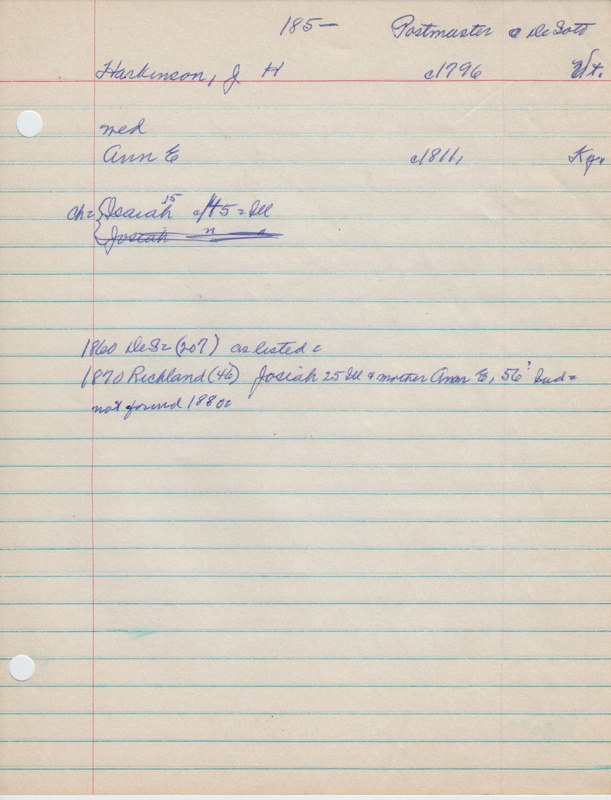 185— Postmaster @ DeSoto
Harkinson, J. H c1796 Vt.
med
Ann E c1811, Ky.
Ch= Isaiah 15 c/45 = Ill
Josiah " "
1860 DeS= (207) as listed =
1870 Richland (46) Josiah 25 Ill & mother Ann E, 56 Ind=
not found 1880=